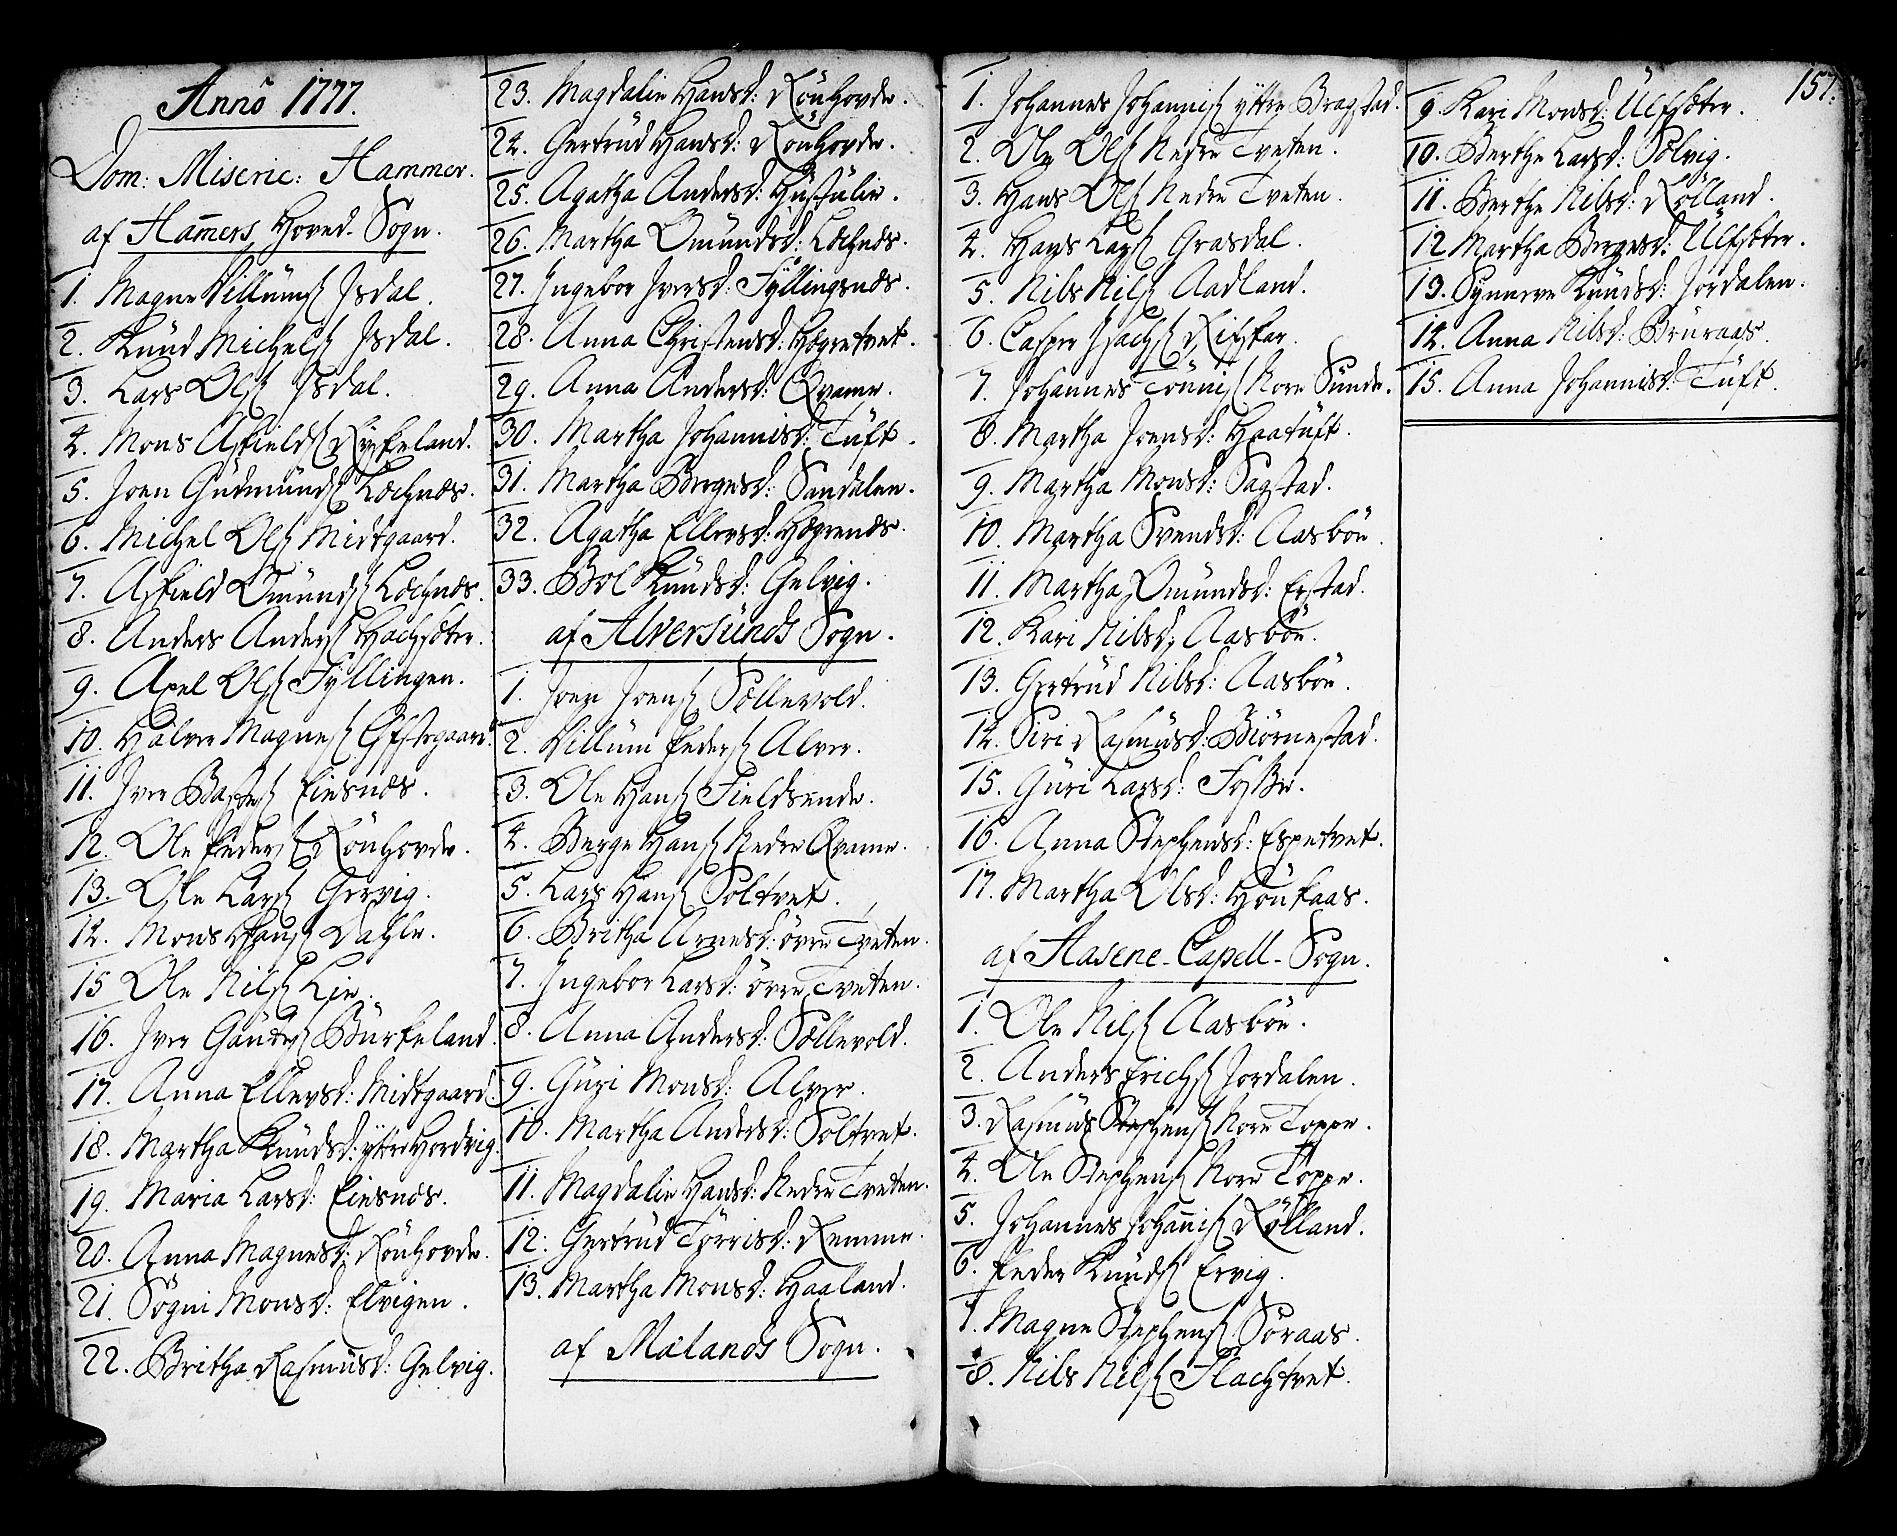 Anno 1777.
Dom: Miseric: Hammer.
af Hamers Hoved-Sogn.
1. Magne Villums Isdal.
2. Knud Michels Isdal.
3. Lars Ols Isdal.
4. Mons Asfields Røskeland.
5. Joen Gudmunds Lochnæs.
6. Michel Ols Midtgaard.
7. Asfield Omunds Lochnæs.
8. Anders Anders Hachsæter.
9. Axel Ols Fyllingen.
10. Halvor Magnes Eftstegaard.
11. Iver Eiesnæs.
12. Ole Peders Rönhovde.
13. Ole Lars Gervig.
14. Mons Hans Dahle.
15 Ole Nils Lie.
16. Iver Gautes Burkeland.
17. Anna Ellersd: Midtgaard.
18. Martha Knudsd: yttre Hordvig.
19. Maria Larsd: Eiesnæs.
20. Anna Magnesd: Rönhovde.
21. Sögni Monsd: Elvigen.
22. Britha Rasmusd: Gelvig.
23. Magdalie Hansd: Rönhovde.
24. Gertrud Hansd: Rönhovde.
25. Agatha Andersd: Hustulie.
26. Martha Omundsd: Lochnæs.
27. Ingebor Iversd: Fyllingsnæs.
28. Anna Christensd: Hegretvet.
29. Anna Andersd: Qvame.
30. Martha Johannisd: Tuft.
31. Martha Bergesd: Sandalen.
32. Agatha Ellersd: Hegrenæs.
33. Bol Knudsd: Gelvig.
af Alversunds Sogn.
1. Joen Joens Sællevold.
2. Villum Peders Alver.
3. Ole Hans Fieldsende.
4. Berge Hans Nedre Qvame.
5. Lars Hans Soltvet.
6. Britha Arnesd: övre Tveten.
7. Ingebor Larsd: övre Tveten.
8. Anna Andersd: Sællevold.
9. Guri Monsd: Alver.
10. Martha Andersd: Soltvet.
11. Magdalie Hansd: Nedre Tveten.
12. Gertrud Torrisd: Remme.
13. Martha Monsd: Haaland.
af Mælands Sogn.
1. Johannes Johannis yttre Bragstad.
2. Ole Ols Nedre Tveten.
3. Hans Ols Nedre Tveten.
4. Hans Lars Grasdal.
5. Nils Nils Aadland.
6. Casper Isachs Rifskar.
7. Johannes Tönnis Nore Sunde.
8. Martha Joensd: Haatuft.
9. Martha Monsd: Sagstad.
10. Martha Svendsd: Aasböe.
11. Martha Omundsd: Erstad.
12. Kari Nilsd: Aasböe.
13. Gertrud Nilsd: Aasböe.
14. Siri Rasmusd: Biörnestad.
15. Guri Larsd: Fosse.
16. Anna Stephensd: Espetvet.
17. Martha Olsd: Höukaas.
af Aasene-Capell-Sogn.
1. Ole Nils Aasböe.
2. Anders Erichs Jordalen.
3. Rasmus Stephens Nore Toppe.
4. Ole Stephens Nore Toppe.
5. Johannes Johannis Rölland.
6. Peder Knuds Ervig.
7. Magne Stephens Söraas.
8. Nils Nils Flachtvet.
157.
9. Kari Monsd: Ulfsæter.
10. Berthe Larsd: Solvig.
11. Berthe Nilsd: Rölland.
12 Martha Bergesd: Ulfsæter.
13. Synneve Knudsd: Jordalen.
14. Anna Nilsd: Bruraas.
15. Anna Johannisd: Tuft.